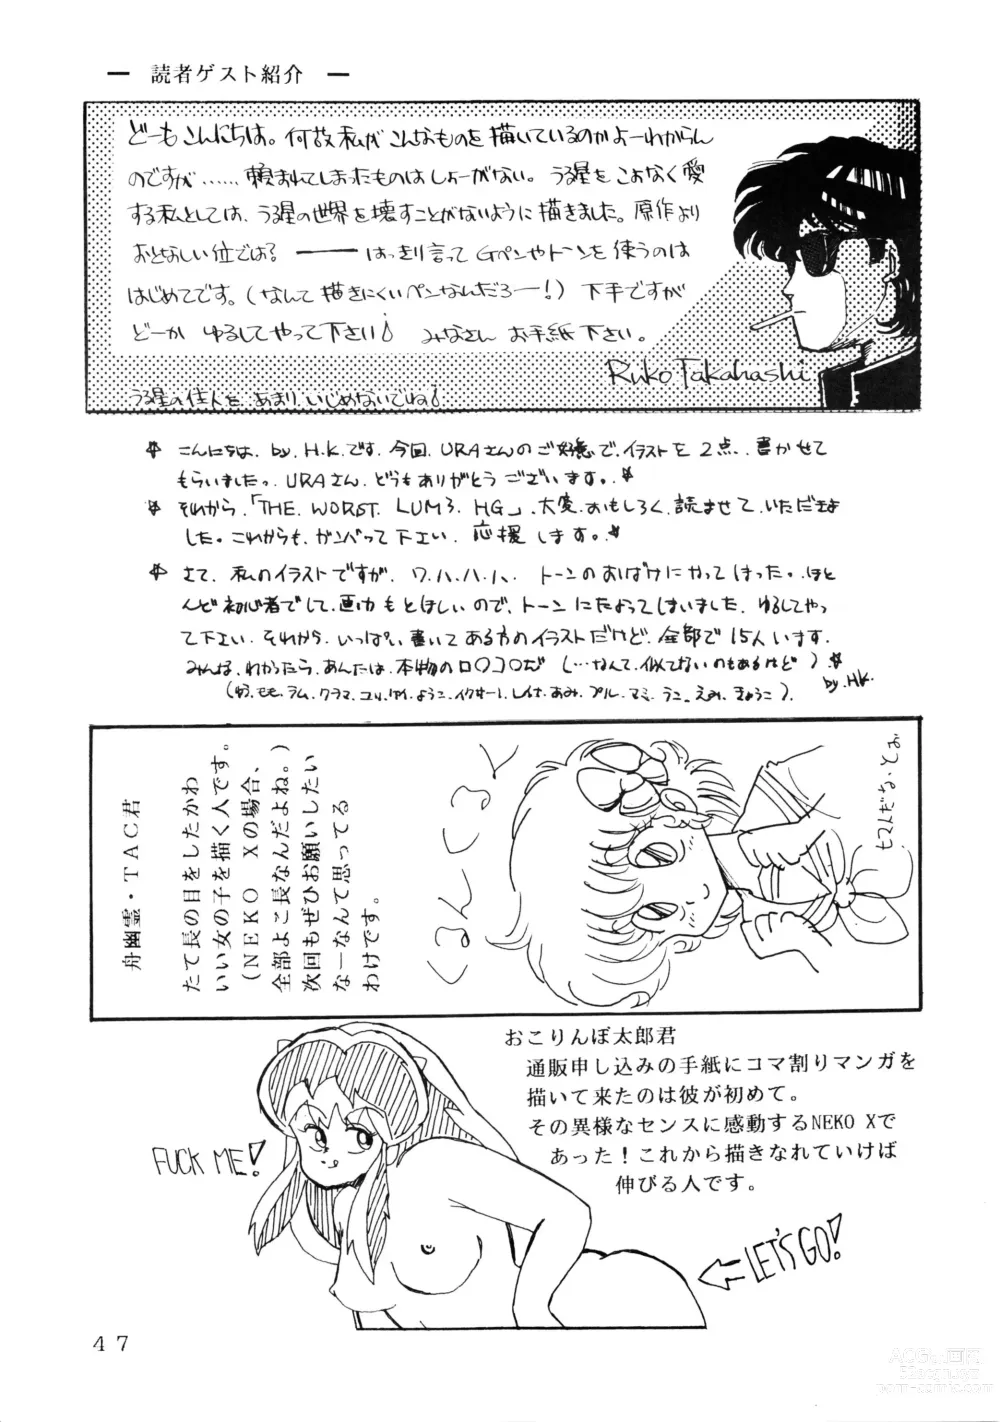 ― 読者ゲスト紹介 ―
どーもこんにちは。何故私がこんなものを描いているのかよーわからん
のですが……頼まれてしまったものはしょーがない。うる星をこよなく愛
する私としては、うる星の世界を壊すことがないように描きました。原作より
おとなしい位では？ ――― はっきり言ってGペンやトーンを使うのは
はじめてです。(なんて描きにくいペンなんだろー！) 下手ですが
どーか ゆるしてやって下さい♪ みなさん お手紙下さい。
Ruko Takahashi
うる星の住人を、あまり、いじめないでね♪
☆ こんにちは、by.H.K.です。今回、URAさんのご好意で、イラストを2点、書かせて
もらいましたっ。URAさん、どうもありがとうございます。☆
☆ それから、「THE WORST LUM3. HG」、大変、おもしろく、読ませて、いただきま
した。これからも、ガンバって下さい、応援します。☆
☆ さて、私のイラストですが、ワ、ハ、ハ、ハ、トーンのおばけにやってしまった。ほと
んど初心者でして、画力もとぼしいので、トーンにたよってしまいました、ゆるしてやっ
て下さい、それから、いっぱい、書いてある方のイラストだけど、全部で15人います。
みんな、わかったら、あんたは、本物のロ○コ○だ (…なんて、似てないのもあるけど)☆
by.H.K.
くるんくるん
ヒマんだな、とぉ
舟幽霊・TAC君
たて長の目をしたかわ
いい女の子を描く人です。
(NEKO Xの場合、
全部よこ長なんだよね。)
次回もぜひお願いしたい
なーなんて思ってる
わけです。
おこりんぼ太郎君
通販申し込みの手紙にコマ割りマンガを
描いて来たのは彼が初めて。
その異様なセンスに感動するNEKO Xで
あった！これから描きなれていけば
伸びる人です。
FUCK ME!
LET'S GO!
47